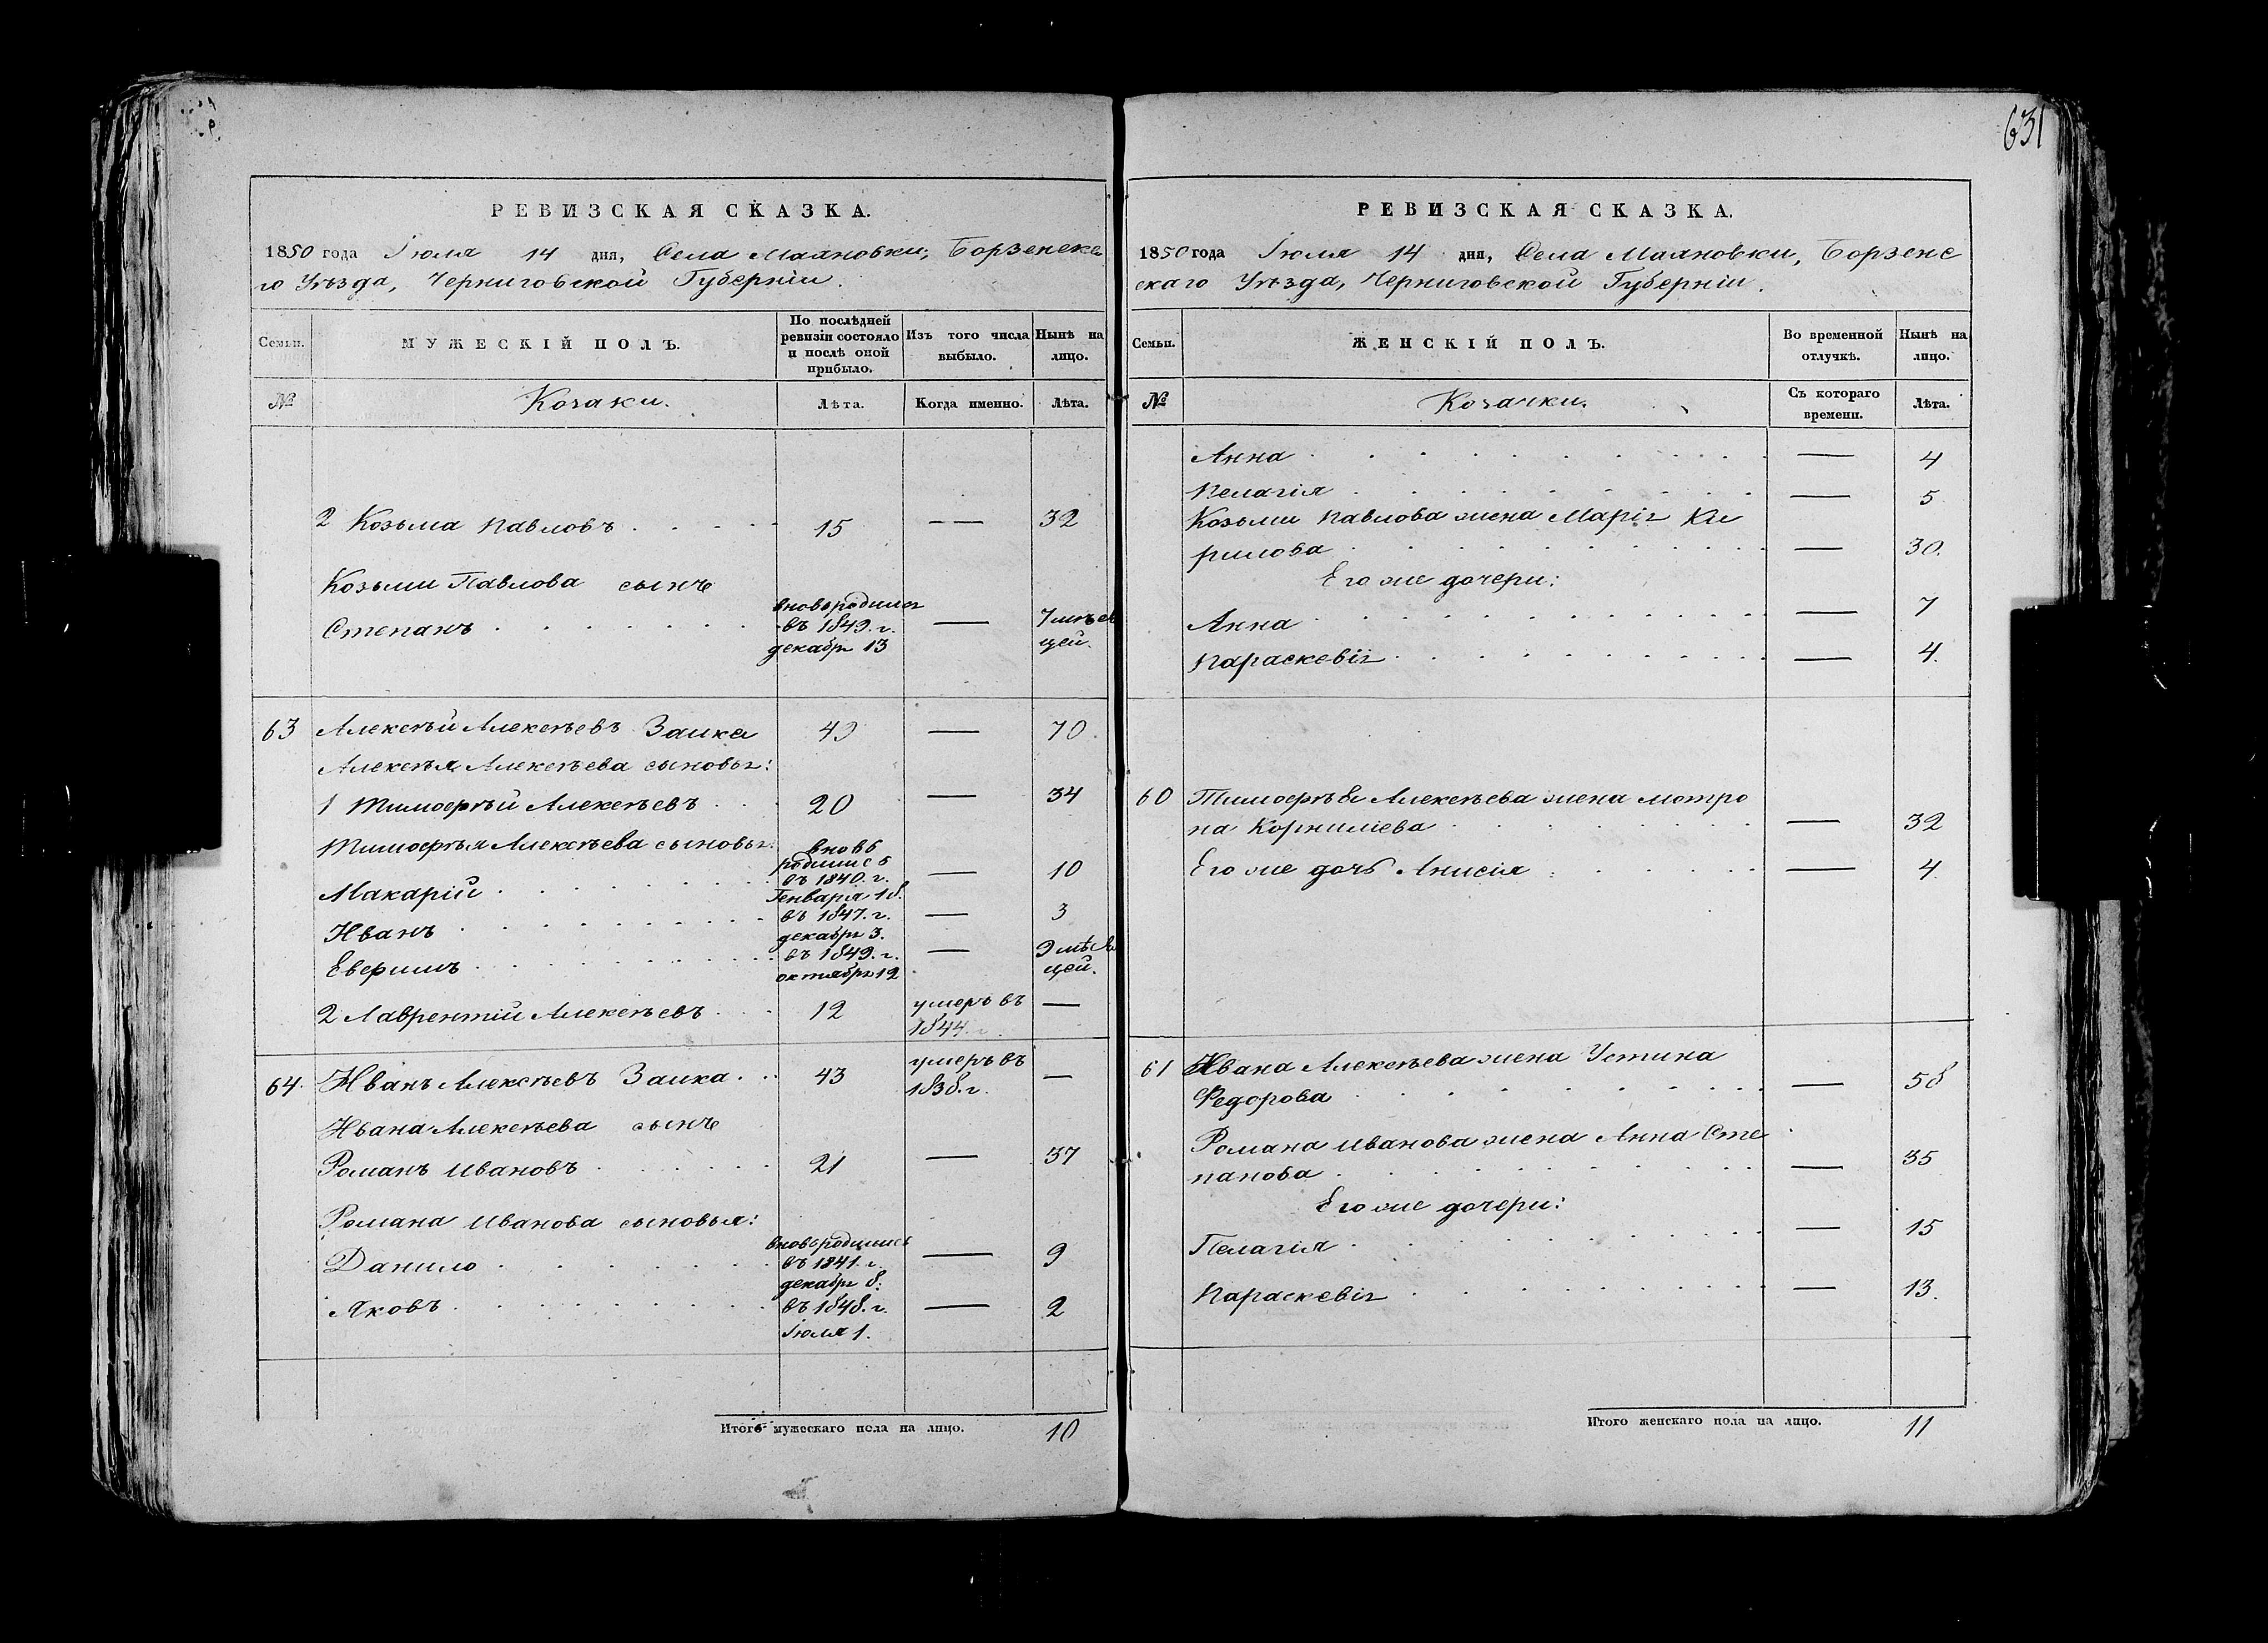 631
РЕВИЗСКАЯ СКАЗКА.
1850 года Іюля 14 дня, Села Малновки, Борзенска
го Уѣзда, Черниговской Губерніи.
Семьи.
МУЖЕСКІЙ ПОЛЪ.
По послѣдней ревизіи состояло и послѣ оной прибыло.
Изъ того числа выбыло.
Нынѣ на лицо.
№ Козаки. Лѣта. Когда именно. Лѣта.
2 Козьма Павловъ 15 — — 32
Козьми Павлова сынъ
Степанъ вновь родился въ 1849. г. декабря 13 — 7 мѣся цей.
63 Алексѣй Алексѣевъ Заика 49 — 70.
Алексѣя Алексѣева сыновья:
1 Тимоѳѣй Алексѣевъ 20 — 34
Тимоѳѣя Алексѣева сыновья: вновь родились
Макарій въ 1840. г. Генваря 18. — 10
Иванъ въ 1847. г. декабря 3. — 3
Евфимъ въ 1849. г. октября 12 — 9 мѣся цей.
2 Лаврентій Алексѣевъ 12 умеръ въ 1844. г. —
64. Иванъ Алексѣевъ Заика 43 умеръ въ 1838. г. —
Ивана Алексѣева сынъ
Романъ Ивановъ 21 — 37
Романа Иванова сыновья:
Данило вновь родились въ 1841. г. декабря 8. — 9
Яковъ въ 1848. г. Іюля 1. — 2
Итого мужескаго пола на лицо. 10
РЕВИЗСКАЯ СКАЗКА.
1850 года Іюля 14 дня, Села Малновки, Борзенс
скаго Уѣзда, Черниговской Губерніи.
Семьи.
ЖЕНСКІЙ ПОЛЪ.
Во временной отлучкѣ.
Нынѣ на лицо.
№ Козачки. Съ котораго времени. Лѣта.
Анна — 4
Пелагія — 5
Козьми Павлова жена Марія Ки
рилова — 30.
Его же дочери:
Анна — 7
Параскевія — 4.
60 Тимоѳѣя Алексѣева жена Мотро
на Корниліева — 32
Его же дочь Анисія — 4
61 Ивана Алексѣева жена Устина
Федорова — 58
Романа Иванова жена Анна Сте
панова — 35
Его же дочери:
Пелагія — 15
Параскевія — 13.
Итого женскаго пола на лицо. 11